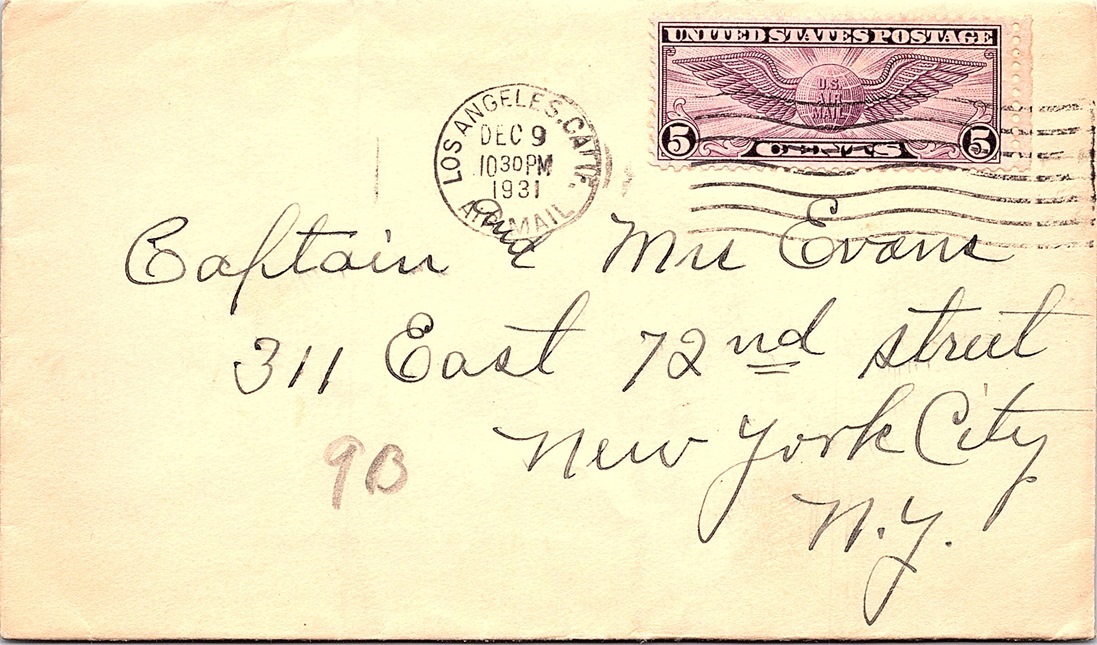 UNITED STATES POSTAGE
U.S.
AIR
MAIL
5 CENTS 5
LOS ANGELES, CALIF.
DEC 9
10 30 PM
1931
AIR MAIL
Captain and Mrs Evans
311 East 72nd street
New York City
N.Y.
9B